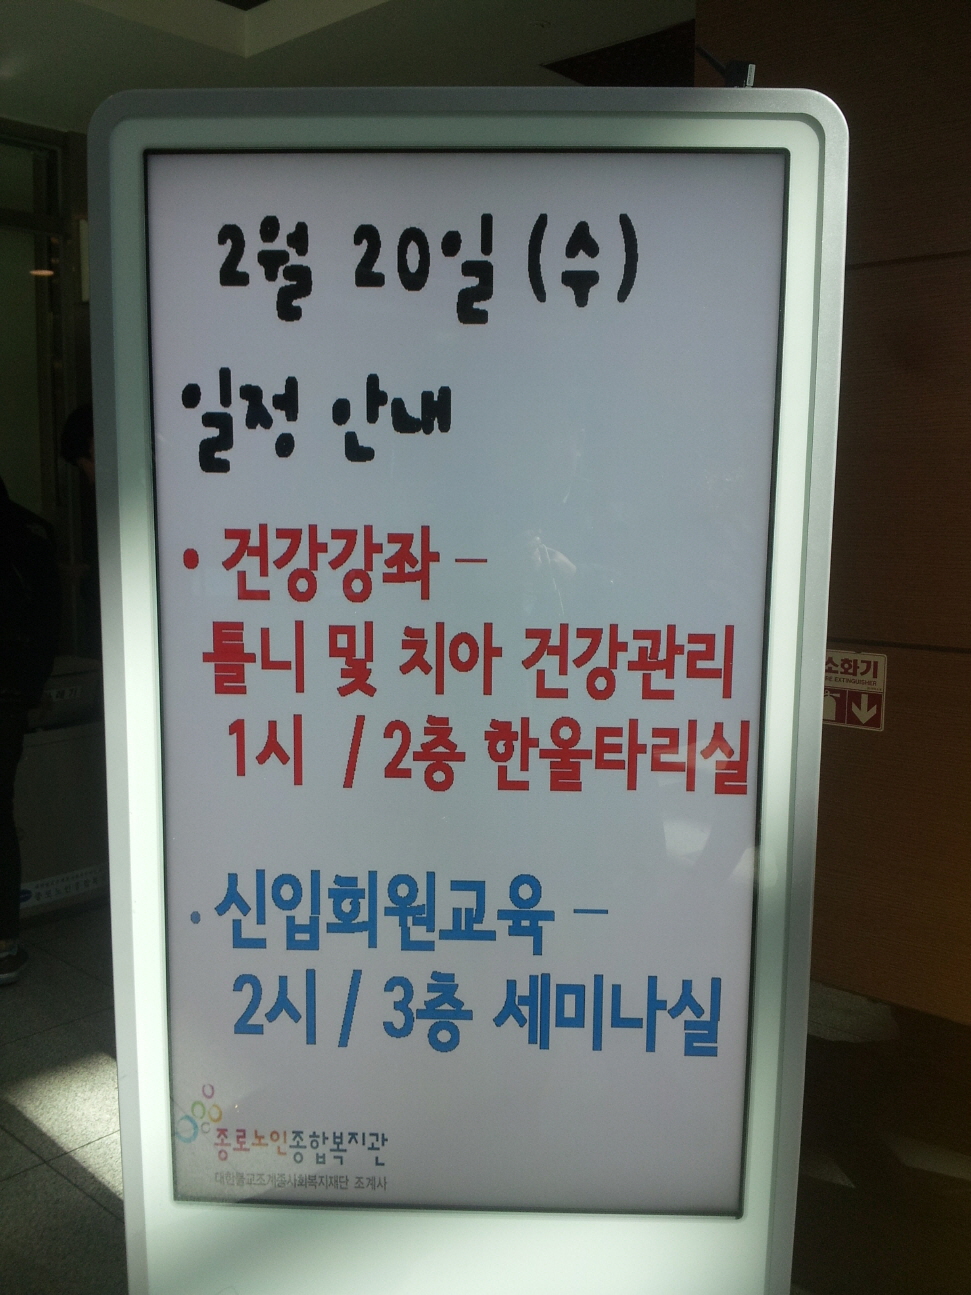 2월 20일 (수)
일정 안내
• 건강강좌 –
틀니 및 치아 건강관리
1시 / 2층 한울타리실
• 신입회원교육 –
2시 / 3층 세미나실
종로노인종합복지관
대한불교조계종사회복지재단 조계사
소화기
FIRE EXTINGUISHER